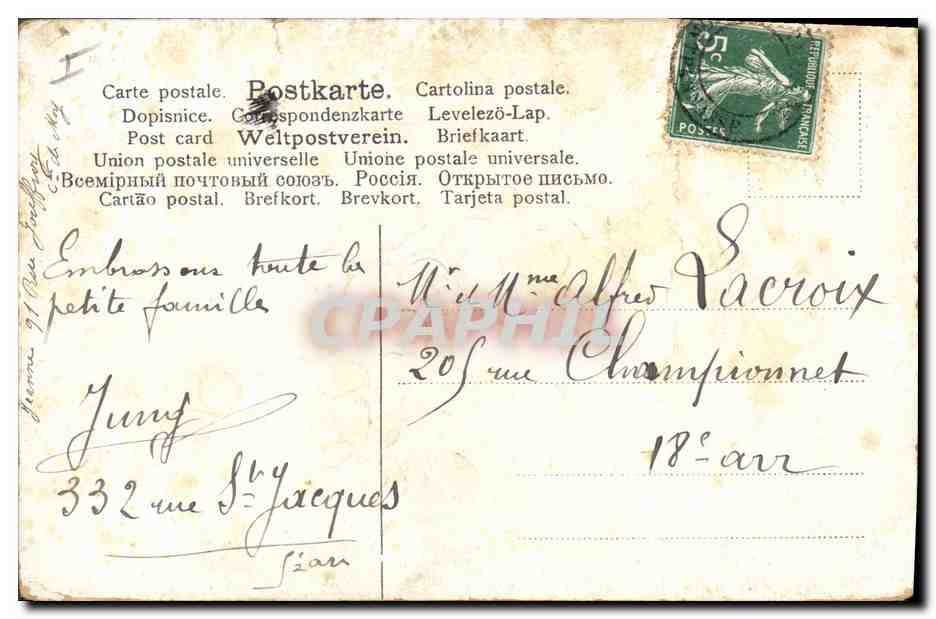 Carte postale. Postkarte. Cartolina postale.
Dopisnice. Correspondenzkarte Levelezö-Lap.
Post card Weltpostverein. Briefkaart.
Union postale universelle Unione postale universale.
Всемірный почтовый союзъ. Россія. Открытое письмо.
Cartão postal. Brefkort. Brevkort. Tarjeta postal.
5c
REPUBLIQUE FRANÇAISE
POSTES
Embrassons toute la
petite famille
Jung
332 rue St Jacques
5e arr
Mr et Mme Alfred Lacroix
205 rue Championnet
18e arr
Jeanne 91 Rue
CPAPHIL